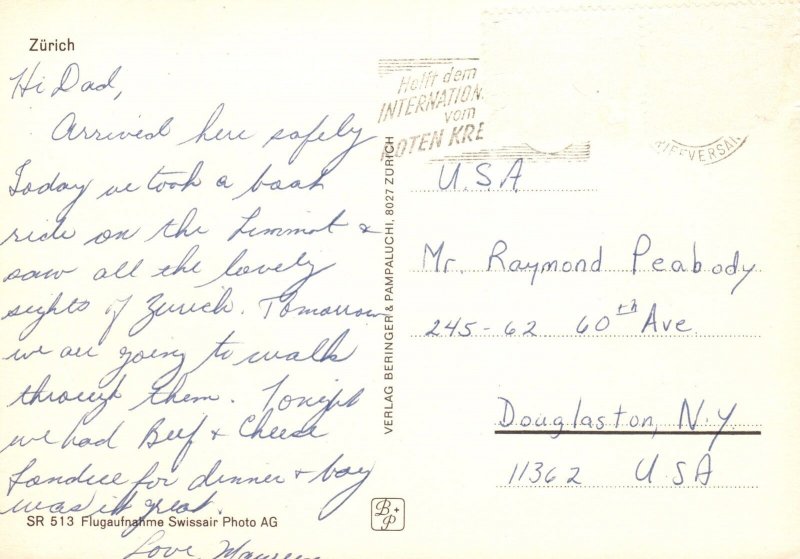 Zürich
Hi Dad,
Arrived here safely
Today we took a boat
ride on the Limmat &
saw all the lovely
sights of Zurich. Tomorrow
we are going to walk
through them. Tonight
we had Beef & Cheese
Fondue for dinner & boy
was it great.
Love, Maureen
SR 513 Flugaufnahme Swissair Photo AG
VERLAG BERINGER & PAMPALUCHI, 8027 ZÜRICH
B+P
Helft dem
INTERNATION.
vom
ROTEN KRE
BRIEFVERSAN
U.S.A
Mr. Raymond Peabody
245-62 60th Ave
Douglaston, N.Y.
11362 USA